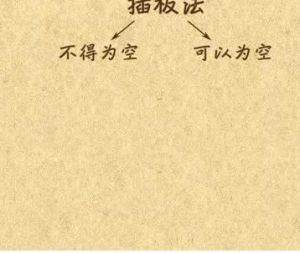 插板法
不得为空 可以为空